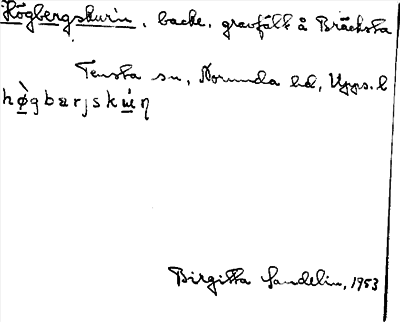 Högbergskurn, backe, gravfält å Bräcksta
Tensta sn, Norunda hd, Upps. l
Birgitta Sandelin, 1953